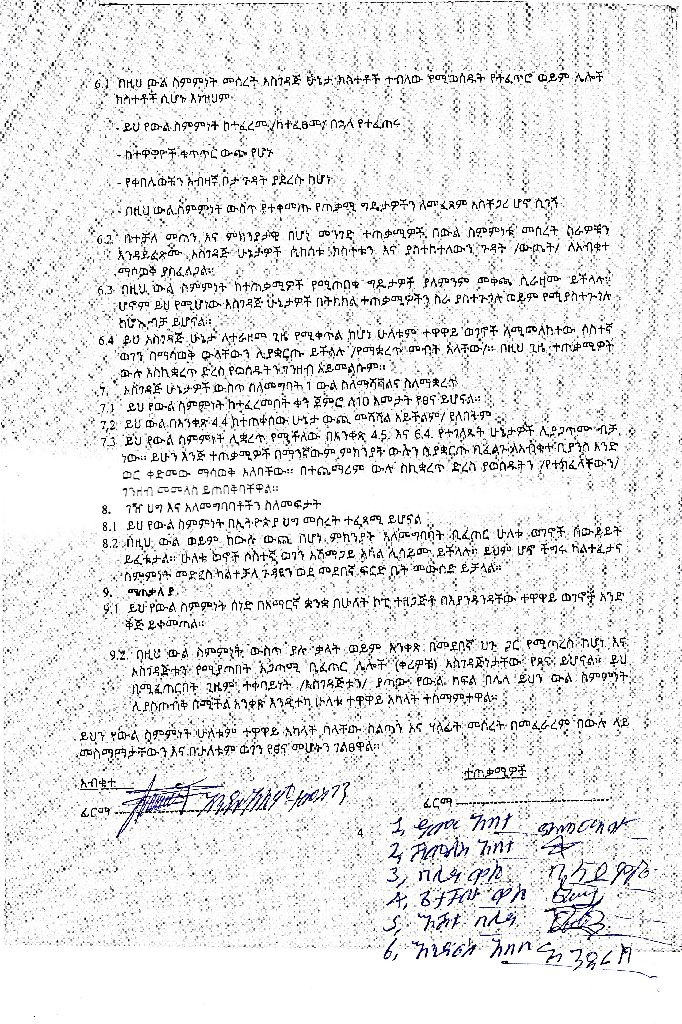 6.1 በዚህ ውል ስምምነት መሰረት አስገዳጅ ሁኔታ ክስተቶች ተብለው የሚወሰዱት የተፈጥሮ ወይም ሌሎች
ክስተቶች ሲሆኑ እነዚህም
- ይህ የውል ስምምነት ከተፈረመ /ከተፈፀመ/ በኋላ የተፈጠሩ
- ከተዋዋዮች ቁጥጥር ውጭ የሆኑ
- የቀበሌውቹን አብዛኛ ቦታ ጉዳት ያደረሱ ከሆነ
- በዚህ ውል ስምምነት ውስጥ የተቀመጡ የጠቃሚ ግዴታዎችን ለመፈጸም አስቸጋሪ ሆኖ ሲገኝ
6.2 በተቻለ መጠን እና ምክንያታዊ በሆነ መንገድ ተጠቃሚዎች በውል ስምምነቱ መሰረት ስራዎቹን
እንዳይፈጽሙ አስገዳጅ ሁኔታዎች ሲከሰቱ ክስተቱን እና ያስከተለውን ጉዳት /ውጤት/ ለአብቁተ
ማሳወቅ ያስፈልጋል።
6.3 በዚህ ውል ስምምነት ከተጠቃሚዎች የሚጠበቁ ግዴታዎች ያለምንም መቀጮ ሲራዘሙ ይችላሉ።
ሆኖም ይህ የሚሆነው አስገዳጅ ሁኔታዎች በትክክል ተጠቃሚዎችን ስራ ያስተጓጎሉ ወይም የሚያስተጓጎሉ
ከሆኑ ብቻ ይሆናል።
6.4 ይህ አስገዳጅ ሁኔታ ለተራዘመ ጊዜ የሚቀጥል ከሆነ ሁለቱም ተዋዋይ ወገኖች ለሚመለከተው ሶስተኛ
ወገን በማሳወቅ ውላቸውን ሊያቋርጡ ይችላሉ /የማቋረጥ መብት አላቸው/። በዚህ ጊዜ ተጠቃሚዎች
ውሉ እስኪቋረጥ ድረስ የወሰዱትን ገንዘብ አይመልሱም።
7. አስገዳጅ ሁኔታዎች ውስጥ ስለመግባት 1 ውል ስለማሻሻልና ስለማቋረጥ
7.1 ይህ የውል ስምምነት ከተፈረመበት ቀን ጀምሮ ለ10 አመታት የፀና ይሆናል።
7.2 ይህ ውል በአንቀጽ 4.4 ከተጠቀሰው ሁኔታ ውጪ መሻሻል አይችልም/ የለበትም
7.3 ይህ የውል ስምምነት ሊቋረጥ የሚችለው በአንቀጽ 4.5. እና 6.4. የተገለጹት ሁኔታዎች ሊያጋጥሙ ብቻ
ነው። ይሁን እንጂ ተጠቃሚዎች በማንኛውም ምክንያት ውሉን ሊያቋርጡ ቢፈልጉ ለአብቁተ ቢያንስ አንድ
ወር ቀድመው ማሳወቅ አለባቸው። በተጨማሪም ውሉ ስኪቋረጥ ድረስ የወሰዱትን /የተከፈላቸውን/
ገንዘብ መመለስ ይጠበቅባቸዋል።
8. ገዥ ህግ እና አለመግባባቶችን ስለመፍታት
8.1 ይህ የውል ስምምነት በኢትዮጵያ ህግ መሰረት ተፈጻሚ ይሆናል
8.2 በዚህ ውል ወይም ከውሉ ውጪ በሆነ ምክንያት አለመግባባት ቢፈጠር ሁለቱ ወገኖች በውይይት
ይፈቱታል። ሁለቱ ወኖች ሶስተኛ ወገን አሸማጋይ አካል ሊሰይሙ ይችላሉ። ይህም ሆኖ ችግሩ ካልተፈታና
ስምምነት መድረስ ካልተቻለ ጉዳዩን ወደ መደበኛ ፍርድ ቤት መውሰድ ይቻላል።
9. ማጠቃለያ
9.1 ይህ የውል ስምምነት ሰነድ በአማርኛ ቋንቋ በሁለት ኮፒ ተዘጋጅቶ በእያንዳንዳቸው ተዋዋይ ወገኖች አንድ
ቅጅ ይቀመጣል።
9.2 በዚህ ውል ስምምነት ውስጥ ያሉ ቃላት ወይም አንቀጽ በመደበኛ ህጉ ጋር የሚጣረስ ከሆነ እና
አስገዳጅቱን የሚያጣበት አጋጣሚ ቢፈጠር ሌሎች (ቀሪዎቹ) አስገዳጅነታቸው የጸና ይሆናል። ይህ
በሚፈጠርበት ጊዜም ተቀባይነት /አስገዳጅቱን/ ያጣው የውል ክፍል በሌላ ይህን ውል ስምምነት
ሊያስጠብቅ በሚችል አንቀጽ እንዲተካ ሁለቱ ተዋዋይ አካላት ተስማምተዋል።
ይህን የውል ስምምነት ሁለቱም ተዋዋይ አካላት ባላቸው ስልጣን እና ሃላፊት መሰረት በመፈራረም በውሉ ላይ
መስማማታቸውን እና በሁለቱም ወገን የፀና መሆኑን ገልፀዋል።
አብቁተ
ተጠቃሚዎች
ፊርማ
ፊርማ
4
1,
2,
3, በላይ
4,
5, በላይ
6,